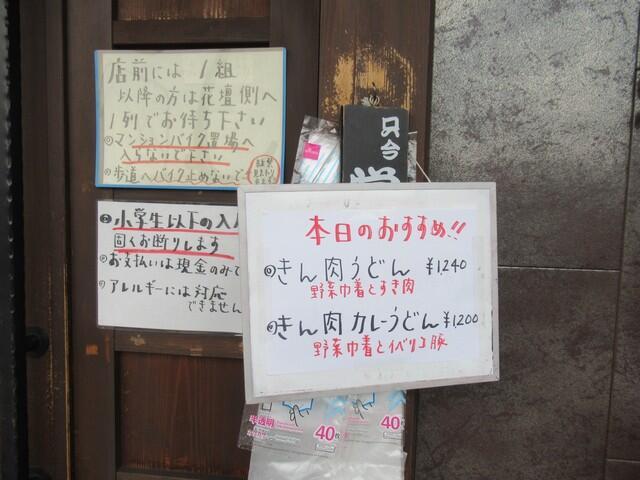 店前には 1組
以降の方は花壇側へ
1列でお待ち下さい
マンションバイク置場へ
入らないで下さい
歩道へバイク止めないで
小学生以下の入
固くお断りします
お支払いは現金のみで
アレルギーには対応
できません
只今
本日のおすすめ!!
きん肉うどん ¥1,240
野菜巾着とすき肉
きん肉カレーうどん ¥1,200
野菜巾着とイベリコ豚
半透明
40枚
40